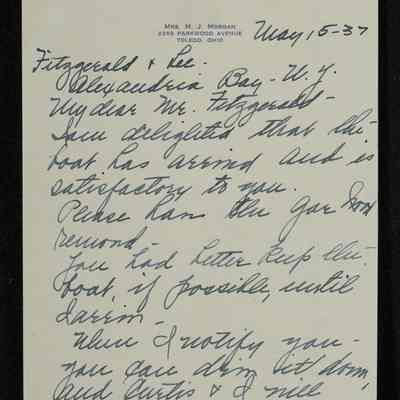 MRS. M. J. MORGAN
2245 PARKWOOD AVENUE
TOLEDO, OHIO
May, 5-37
Fitzgerald & Lee.
Alexandria Bay - N.Y.
My dear Mr. Fitzgerald -
I am delighted that the
boat has arrived and is
satisfactory to you.
Please have the gas
removed -
You had better keep the
boat, if possible, until
I arrive -
When I notify you -
you can drive it down,
and Curtis & I will